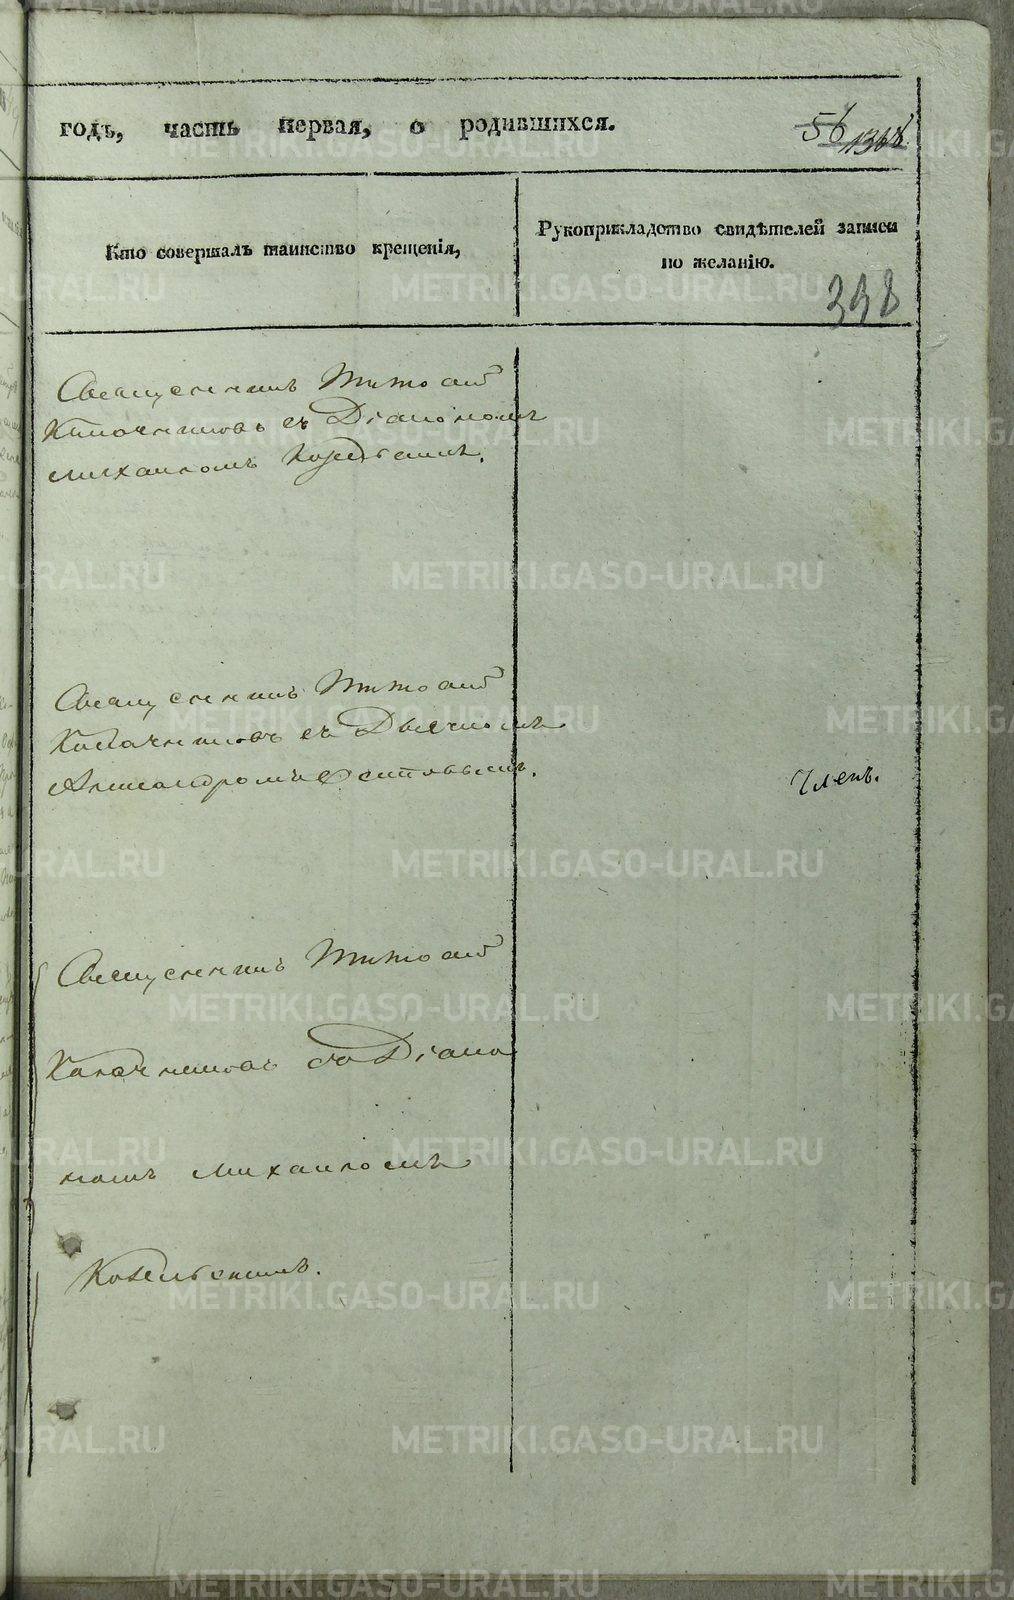 годъ, часть первая, о родившихся.
56
1368
Кто совершалъ таинство крещенія,
Рукоприкладство свидѣтелей записи
по желанію.
398
Священникъ Тимофей
съ Діакономъ
Михаиломъ
Священникъ Тимофей
Калачниковъ съ Дьячкомъ
Александромъ
Членъ.
Священникъ Тимофей
Калачниковъ со Діако
номъ Михаиломъ
METRIKI.GASO-URAL.RU